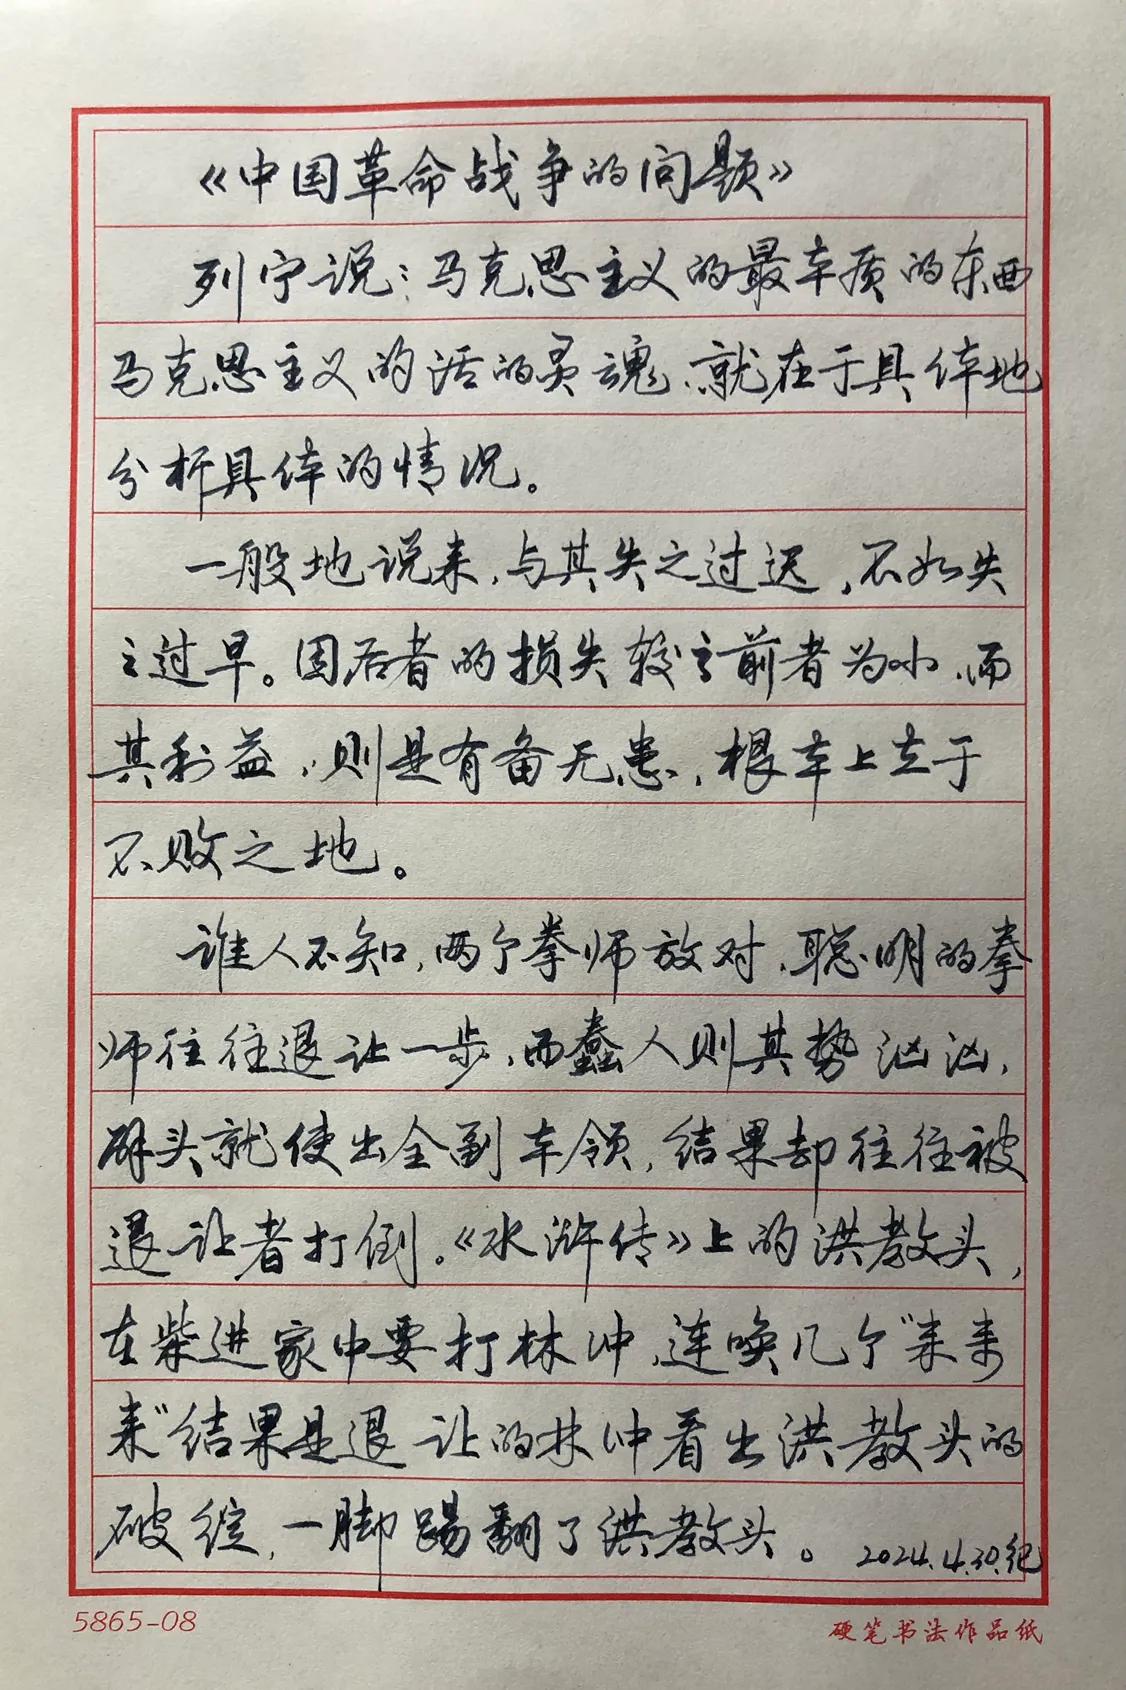 《中国革命战争的问题》
列宁说：马克思主义的最本质的东西
马克思主义的活的灵魂、就在于具体地
分析具体的情况。
一般地说来，与其失之过迟，不如失
之过早。因后者的损失较之前者为小，而
其利益，则是有备无患，根本上立于
不败之地。
谁人不知，两个拳师放对，聪明的拳
师往往退让一步，而蠢人则其势汹汹，
辟头就使出全副本领，结果却往往被
退让者打倒。《水浒传》上的洪教头，
在柴进家中要打林冲，连唤几个“来来
来”结果是退让的林冲看出洪教头的
破绽，一脚踢翻了洪教头。 2024.4.30.纪
5865-08 硬笔书法作品纸